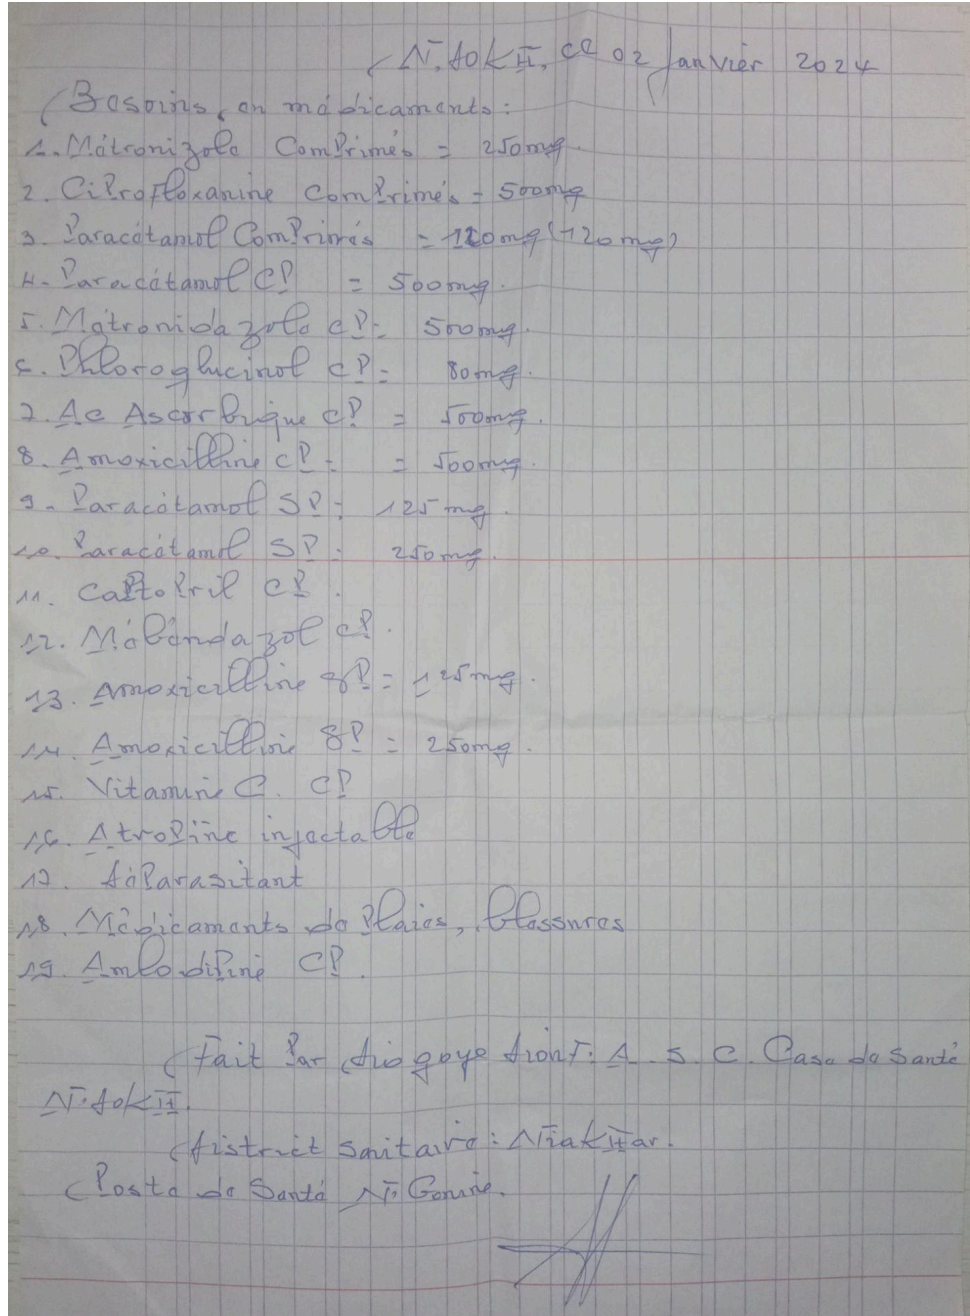 N. dokH, ce 02 Janvier 2024
Besoins en médicaments:
1. Métronizole Comprimés = 250mg.
2. Ciprofloxanine Comprimés = 500mg
3. Paracétamol Comprimés = 120mg (120mg)
4. Paracétamol CP = 500mg.
5. Métronidazole CP = 500mg.
6. Phloroglucinol CP = 80mg.
7. Ac Ascorbique CP = 500mg.
8. Amoxicilline CP = = 500mg.
9. Paracétamol SP: 125mg.
10. Paracétamol SP: 250mg.
11. Captopril CP.
12. Mébéndazol CP.
13. Amoxicilline SP = 125mg.
14. Amoxicilline SP = 250mg.
15. Vitamine C. CP
16. Atropine injectable
17. déparasitant
18. Médicaments de Plaies, blessures
19. Amlodipine CP.
Fait Par diogoye dionf: A.S.C. Case de Santé
N. dokH.
district sanitaire: NiakHar.
Poste de Santé N. Gonine.